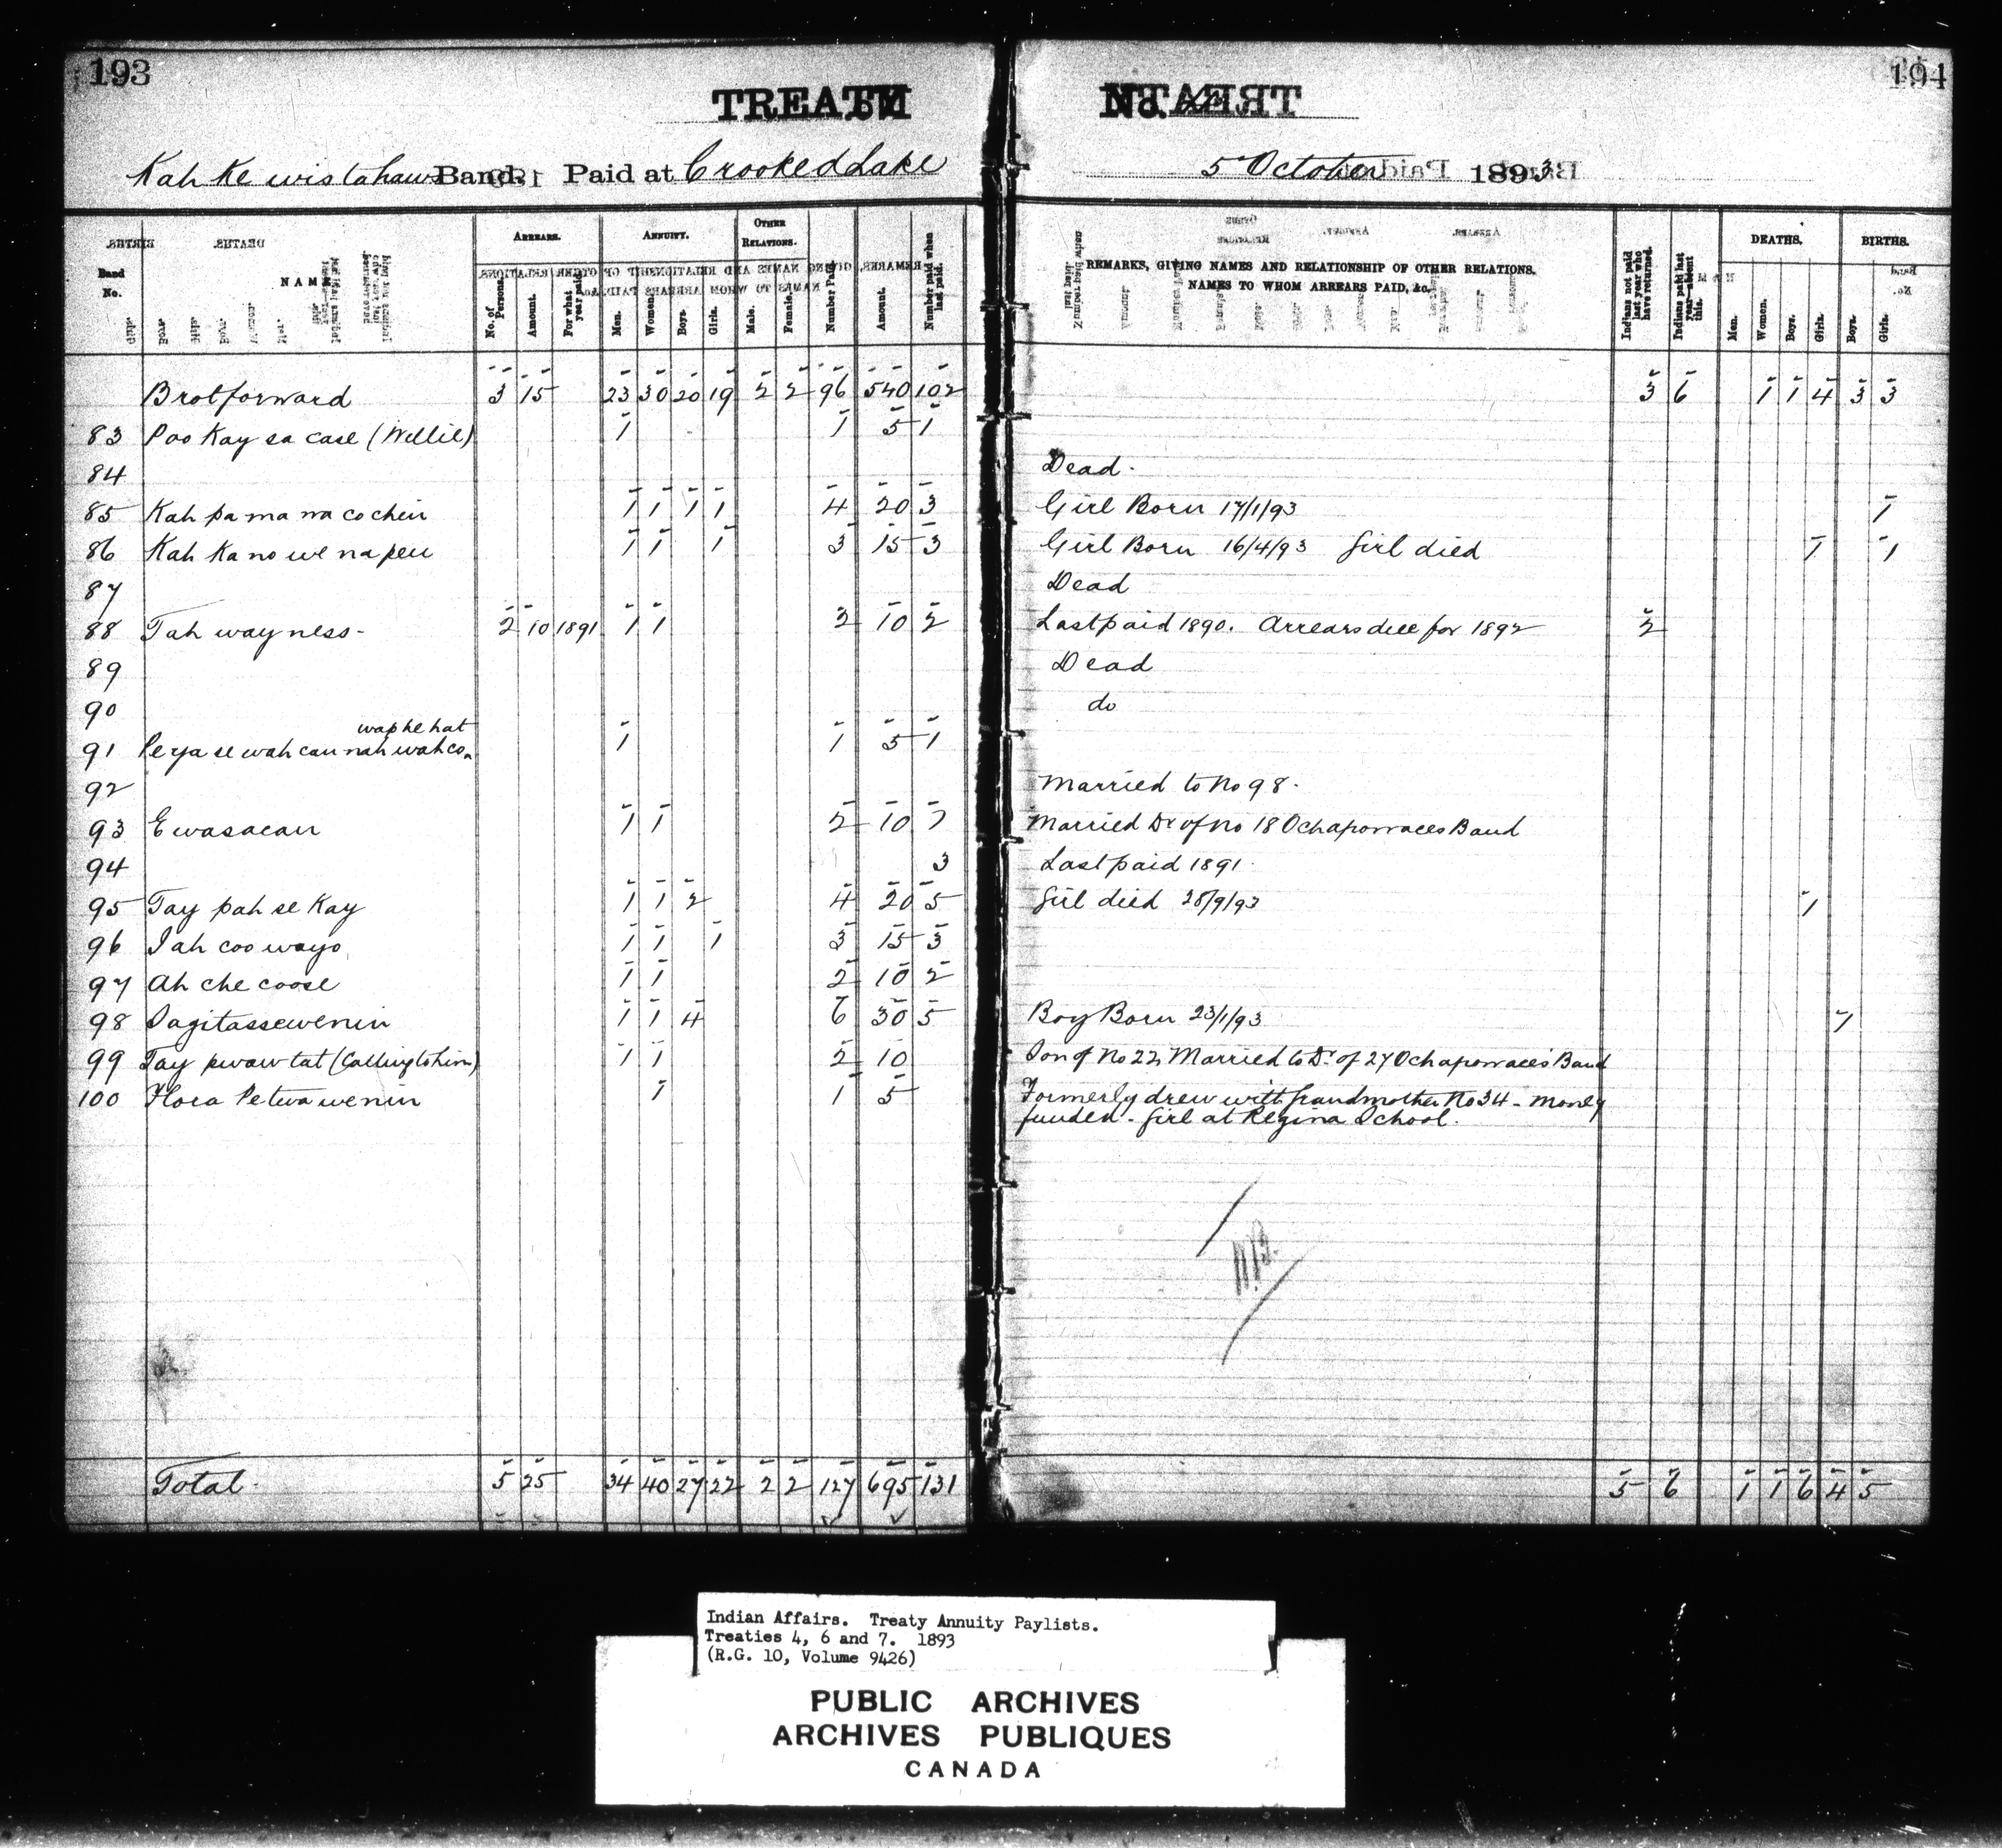 193
194
TREATY
No. 4
Kah Ke wis tahaws Band. Paid at Crooked Lake
5 October 1893
Band No.
NAME
ARREARS.
No. of Persons.
Amount.
For what year paid.
ANNUITY.
Men.
Women.
Boys.
Girls.
OTHER RELATIONS.
Male.
Female.
Number Paid.
Amount.
Number paid when last paid.
REMARKS, GIVING NAMES AND RELATIONSHIP OF OTHER RELATIONS.
NAMES TO WHOM ARREARS PAID, &c.
Indians not paid last year who have returned.
Indians paid last year—absent this.
DEATHS.
Men.
Women.
Boys.
Girls.
BIRTHS.
Boys.
Girls.
Brot forward 3 15 23 30 20 19 2 2 96 540 102 3 6 1 1 4 3 3
83 Poo Kay sa case (Willie) 1 1 5 1
84 Dead.
85 Kah pa ma na co chin 1 1 1 1 4 20 3 Girl Born 17/1/93 1
86 Kah Ka no we na peu 1 1 1 3 15 3 Girl Born 16/4/93 Girl died 1 1
87 Dead
88 Tah way ness - 2 10 1891 1 1 2 10 2 Last paid 1890. Arrears due for 1892 2
89 Dead
90 do
wap he hat
91 Pe ya se wah cau nah wah co 1 1 5 1
92 Married to No 98.
93 Ewasacan 1 1 2 10 7 Married Dr of No 18 Ochapowaces Band
94 3 Last paid 1891
95 Tay pah se Kay 1 1 2 4 20 5 Girl died 28/9/93 1
96 Jah coo wayo 1 1 1 3 15 3
97 Ah che coose 1 1 2 10 2
98 Sagitassewenin 1 1 4 6 30 5 Boy Born 23/1/93 1
99 Tay pwaw tat (Calling to him) 1 1 2 10 Son of No 22, Married to Dr of 27 Ochapowaces Band
100 Flora Petwawenin 1 1 5 Formerly drew with Grandmother No 34 - Money
funded - Girl at Regina School.
Total 5 25 34 40 27 22 2 2 127 695 131 5 6 1 1 6 4 5
Indian Affairs. Treaty Annuity Paylists.
Treaties 4, 6 and 7. 1893
(R.G. 10, Volume 9426)
PUBLIC ARCHIVES
ARCHIVES PUBLIQUES
CANADA